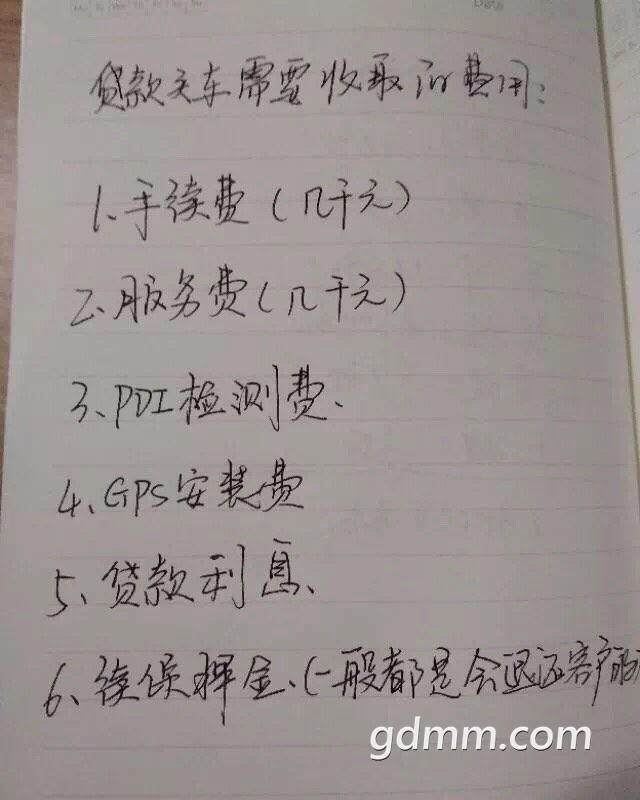 贷款买车需要收取的费用：
1、手续费（几千元）
2、服务费（几千元）
3、PDI检测费、
4、GPS安装费
5、贷款利息、
6、续保押金、（一般都是会退还客户的
gdmm.com